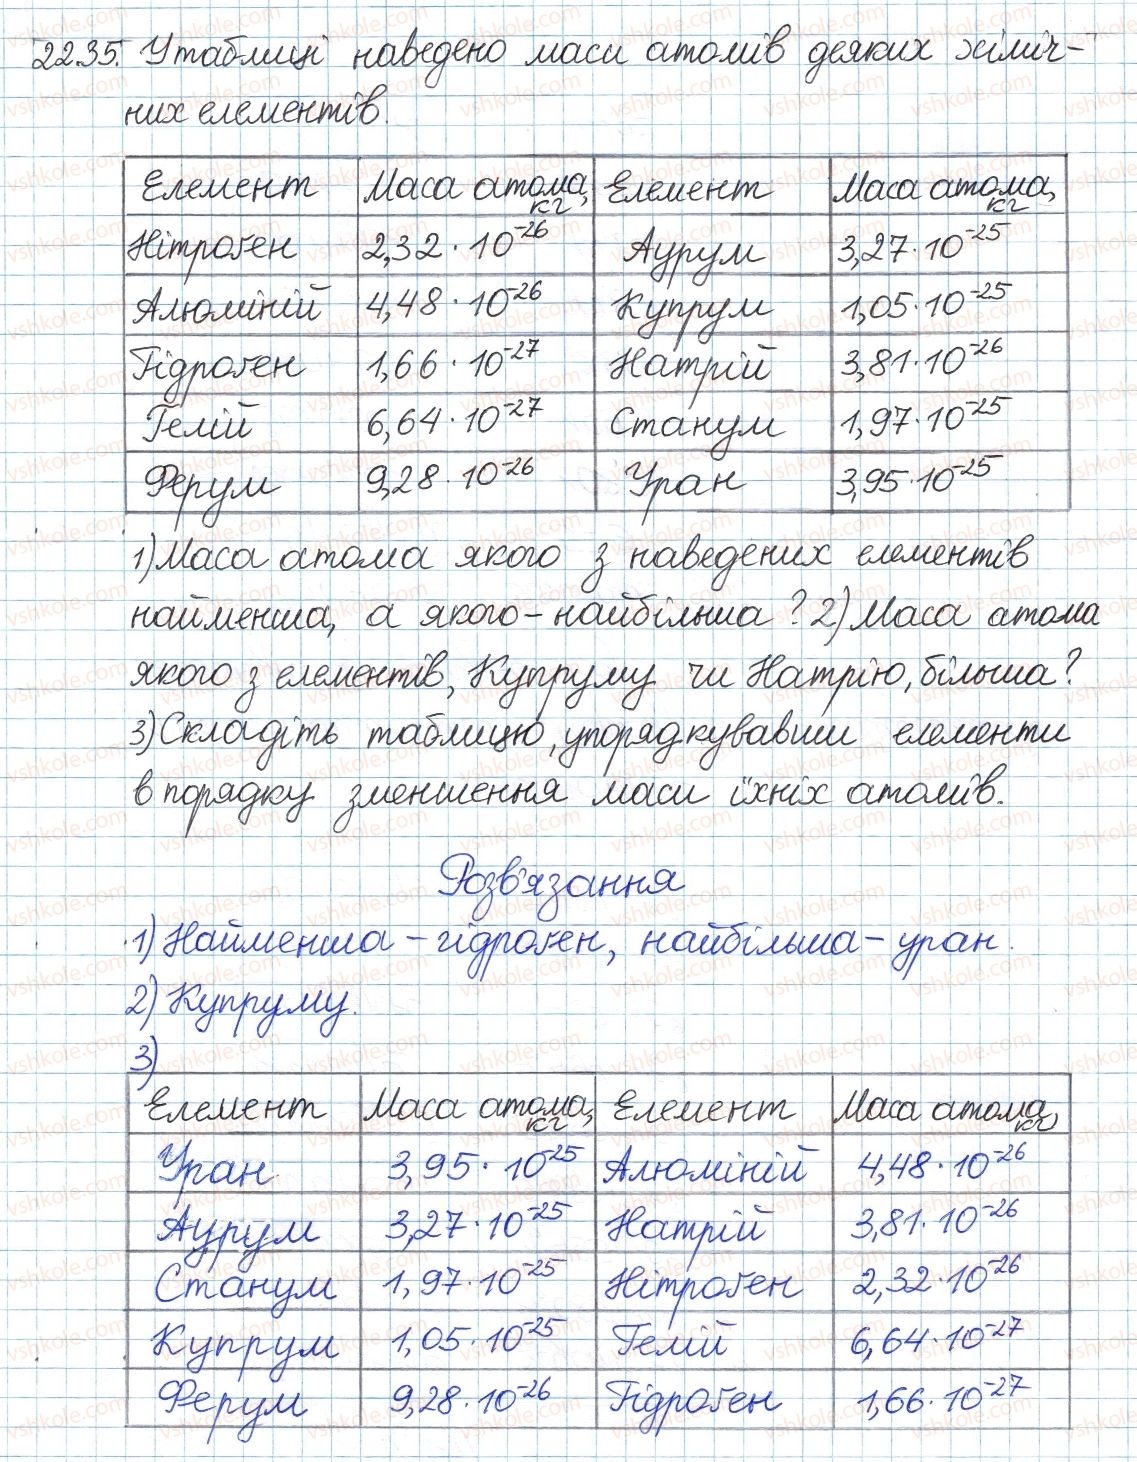 22.35. У таблиці наведено маси атомів деяких хіміч-
них елементів.
Елемент | Маса атома, кг | Елемент | Маса атома, кг
Нітроген | 2,32·10⁻²⁶ | Аурум | 3,27·10⁻²⁵
Алюміній | 4,48·10⁻²⁶ | Купрум | 1,05·10⁻²⁵
Гідроген | 1,66·10⁻²⁷ | Натрій | 3,81·10⁻²⁶
Гелій | 6,64·10⁻²⁷ | Станум | 1,97·10⁻²⁵
Ферум | 9,28·10⁻²⁶ | Уран | 3,95·10⁻²⁵
1) Маса атома якого з наведених елементів
найменша, а якого – найбільша? 2) Маса атома
якого з елементів, Купруму чи Натрію, більша?
3) Складіть таблицю, упорядкувавши елементи
в порядку зменшення маси їхніх атомів.
Розв'язання
1) Найменша – гідроген, найбільша – уран.
2) Купруму.
3)
Елемент | Маса атома, кг | Елемент | Маса атома, кг
Уран | 3,95·10⁻²⁵ | Алюміній | 4,48·10⁻²⁶
Аурум | 3,27·10⁻²⁵ | Натрій | 3,81·10⁻²⁶
Станум | 1,97·10⁻²⁵ | Нітроген | 2,32·10⁻²⁶
Купрум | 1,05·10⁻²⁵ | Гелій | 6,64·10⁻²⁷
Ферум | 9,28·10⁻²⁶ | Гідроген | 1,66·10⁻²⁷